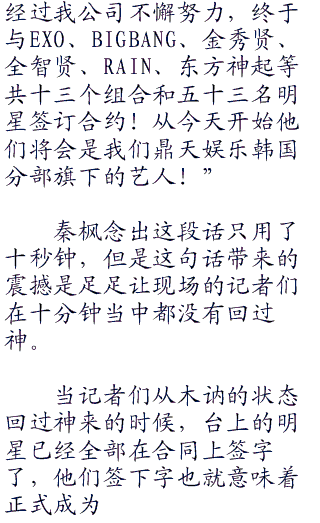 经过我公司不懈努力，终于
与EXO、BIGBANG、金秀贤、
全智贤、RAIN、东方神起等
共十三个组合和五十三名明
星签订合约！从今天开始他
们将会是我们鼎天娱乐韩国
分部旗下的艺人！”
秦枫念出这段话只用了
十秒钟，但是这句话带来的
震撼是足足让现场的记者们
在十分钟当中都没有回过
神。
当记者们从木讷的状态
回过神来的时候，台上的明
星已经全部在合同上签字
了，他们签下字也就意味着
正式成为